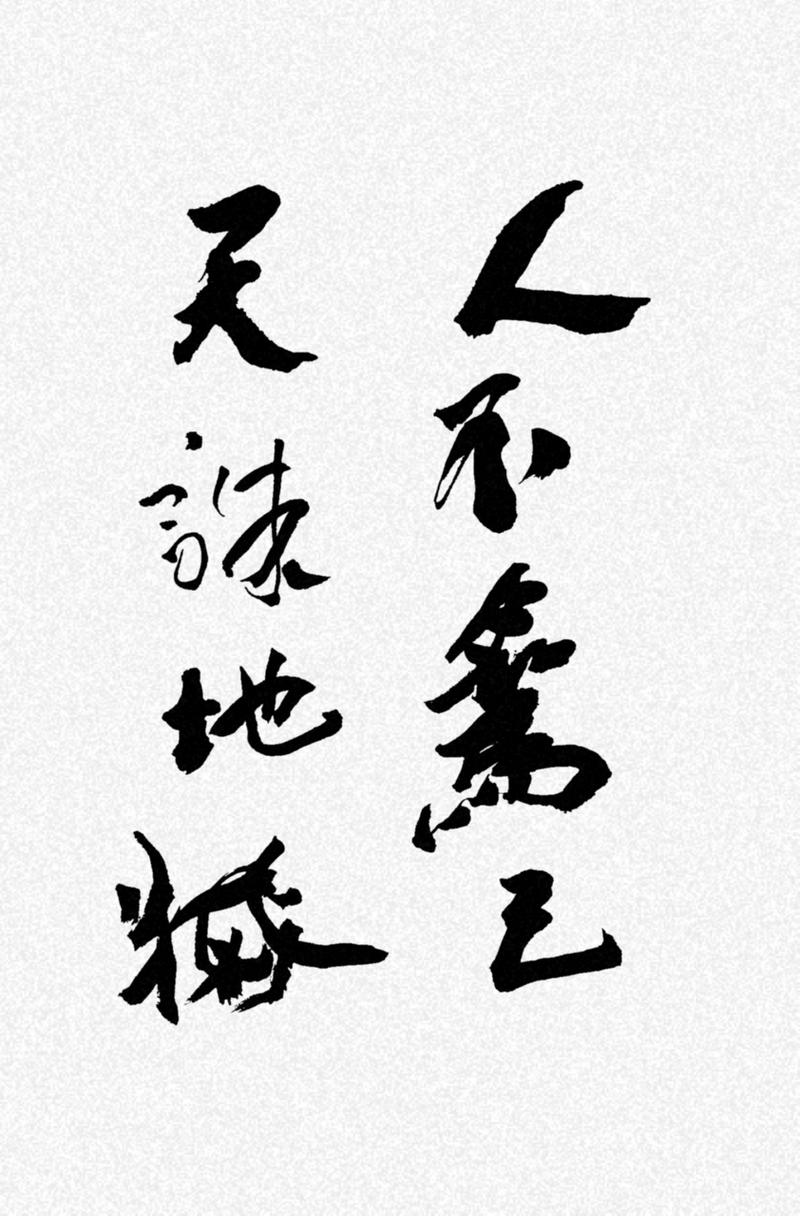 人不爲己
天誅地滅